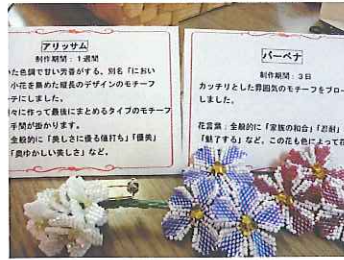 アリッサム
制作期間：1週間
た色調で甘い芳香がする、別名「におい
小花を集めた縦長のデザインのモチーフ
ーチにしました。
々に作って最後にまとめるタイプのモチーフ
手間が掛かります。
全般的に「美しさに優る値打ち」「優美」
「奥ゆかしい美しさ」など。
バーベナ
制作期間：3日
カッチリとした雰囲気のモチーフをブロー
しました。
花言葉：全般的に「家族の和合」「忍耐」
「魅了する」など、この花も色によって花